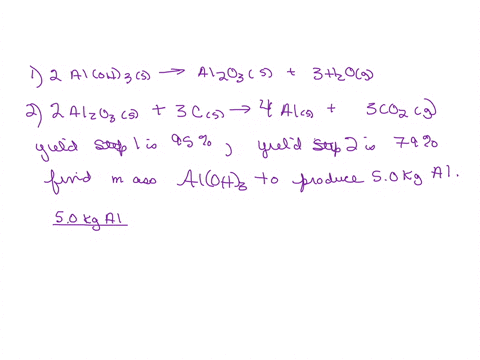 1) 2 Al(OH)3(s) → Al2O3(s) + 3H2O(g)
2) 2 Al2O3(s) + 3C(s) → 4 Al(s) + 3CO2(g)
yield step 1 is 95%, yield step 2 is 79%
find mass Al(OH)3 to produce 5.0 kg Al.
5.0 kg Al